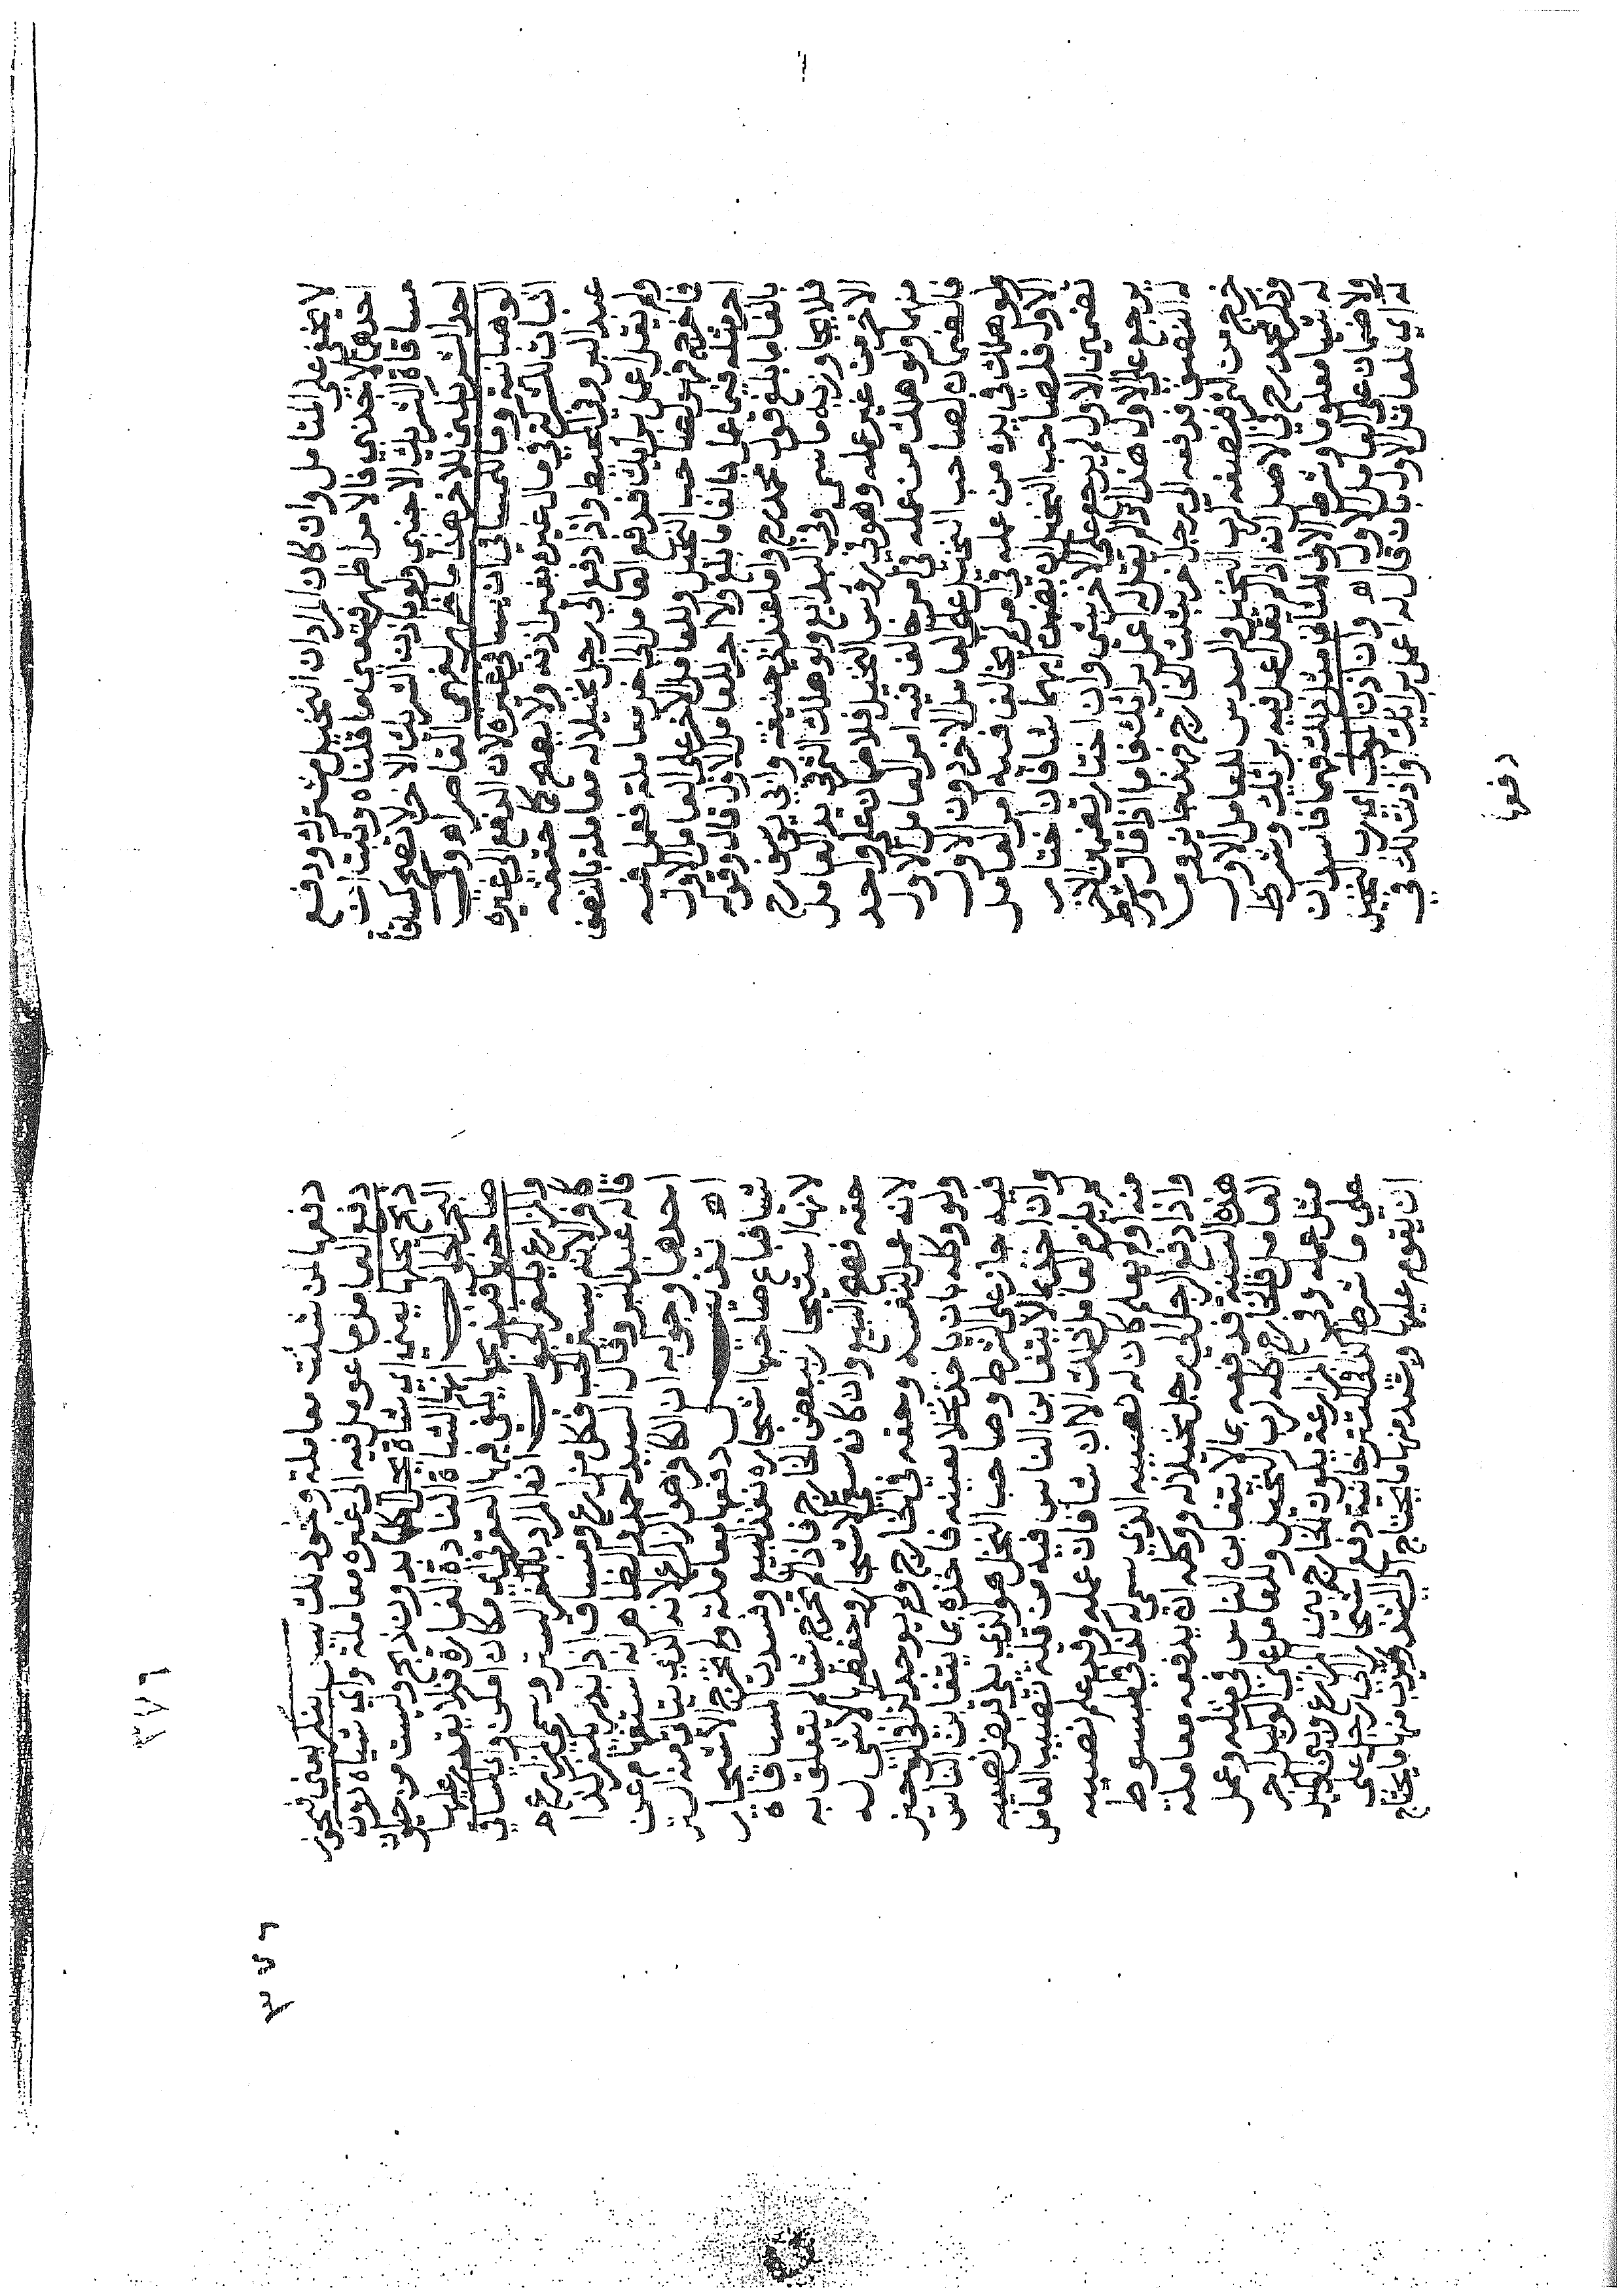 لا يخفى على المتأمل وان كان المراد ان النخيل مشترك ودفع
احدهما لاجنبي فالامر اظهر فتعين ما قلناه وثبت ان
مساقاة الشريك الاجنبي ولو باذن الشريك الاخر لا تصح كمساقاة
احد الشريكين للاخر هذا ما ظهر لفهمي القاصر اه وفي
الوهبانية وما للمساقي ان يساقي غيره لان الدفع الى غيره
اثبات الشركة في مال غيره بغير اذنه ولا يصح كما حققه
عبد البر وفي المحيط واذا دفع الى رجل نخيلا له معاملة بالنصف
ولم يقل اعمل برايك فدفع العامل الى اخر معاملة فعمل فيه
فاخرج فهو لصاحب النخيل وللعامل الاخر على العامل الاول
اجر مثله فيما عمل بالغا ما بلغ ولا اجر للعامل الاول قال وقوله
بالغا ما بلغ قول محمد رح واما عند ابي حنيفة وابي يوسف رح
فلا يجاوز به ما سمى وفي البدايع ولو هلك الثمر في يد العامل
الاخر من غير عمله وهو في رؤس النخيل فلا ضمان على واحد
منهما ولو هلك من عمله في امر خالف فيه امر العامل الاول
فالضمان لصاحب النخيل على العامل الاخر دون الاول
ولو هلك في يده من عمله في امر لم يخالف فيه امر العامل
الاول فلصاحب النخيل ان يضمن ايهما شا فان اختار
تضمين الاول لم يرجع على الاخر بشي وان اختار تضمين الاخر
يرجع على الاول هذا اذا لم يقل له اعمل برائك فاما اذا قال وشرط
له النصف فدفعه الى رجل اخر بثلث الخارج فهذا جائز وما
خرج من الثمر فنصفه لرب النخيل والسدس للعامل الاول
وذكر محمد رح في الاصل انه اذا لم يقل اعمل فيه برائك وشرط
له شيا معلوما وشرط الاول للثاني مثل ذلك فهما فاسدان
ولا ضمان على العامل الاول اه وان اذن المولى اي رب النخيل
له اي للمعامل الاول بان قال له اعمل برايك او اذنت لك في
دفعها
٣٧٦
٣٧٦
دفعها لمن شئت معاملة ونحو ذلك ليس ينكر يعني فيجوز
دفع العامل ما عومل فيه الى غيره معاملة واي شياه دون
ذبح يحلها يعني اي شاة يحل اكلها بدون ذبح وليست من حيوان
البحر الجواب انها الشاة النادة النفارة فلا يقدر عليها
صاحبها فتذبح بما يكفي فيها العقر في اي مكان امكن ومن المساقي
والمزارع يكفر الجواب انه المراد بالكفر الستر وسمي المزارع
كافرا لانه يستر الحب فكل مزارع ومساق اذا بذر يكفر كذا
قاله عبد البر وقال السيد احمد الظاهر انه استفهام عن
احدهما وجوابه ان الكافر هو الزارع لانه الذي يتاتى منه الستر
اه تذنيب دفعها معاملة ولم تخرج الاشجار
شيا فباع صاحبها اشجاره نفذ البيع وفسدت المساقاة
لانها استيجار ببعض الخارج فاذا لم تخرج شيا لم يتعلق به
حقه فصح البيع وان كان سقى الاشجار وحفظها لا شي له
لانه عمل لنفسه وحقه في الخارج ولم يوجد كذا في الوجيز
ولو وكله بان ياخذ نخلا بعينه فاخذه بما يتغابن الناس
فيه جاز على الشرط وصاحب النخل هو الذي يلي قبض نصيبه
وان اخذه بما لا يتغابن الناس فيه من قلة نصيب العامل
لم يلزم العامل ذلك الا ان شا فان عمله وقد علم نصيبه
منه او لم يعلم كان له نصيبه الذي سمى له كذا في المبسوط
واذا دفع الرجل الى رجل نخيلا له ووكله ان يدفعه معاملة
هذه السنة فدفعه بما لا يتغابن الناس في مثله وعمل
العامل فالخارج كله لرب النخيل وللعامل على الوكيل اجر
مثل عمله وفي المزارعة يكون الخارج بين المزارع وبين الوكيل
على ما شرطا كذا في التتارخانية دفع اشجارا الى رجل على
ان يقوم عليها ويشد منها ما يحتاج الى الشد ويزبر منها ما يحتاج